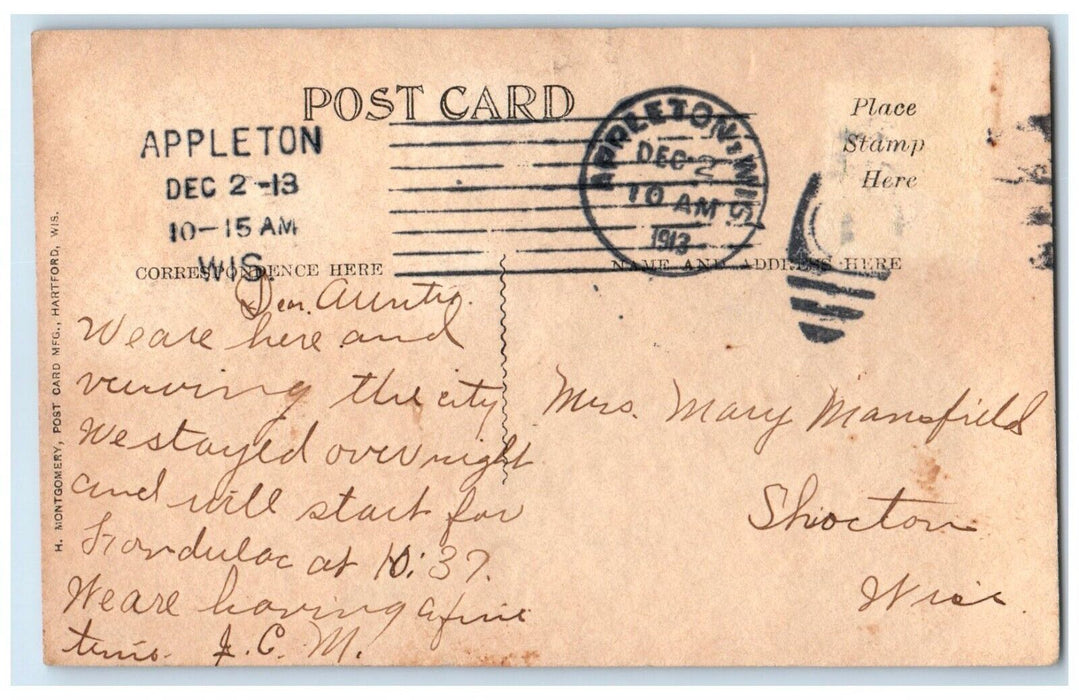 POST CARD
APPLETON
DEC 2-13
10-15 AM
WIS.
APPLETON, WIS.
DEC 2
10 AM
1913
Place
Stamp
Here
CORRESPONDENCE HERE
NAME AND ADDRESS HERE
H. MONTGOMERY, POST CARD MFG., HARTFORD, WIS.
Dear Auntie.
We are here and
viewing the city
We stayed over night
and will start for
Fondulac at 10:37.
We are having a fine
time. J. C. M.
Mrs. Mary Mansfield
Shiocton
Wisc.